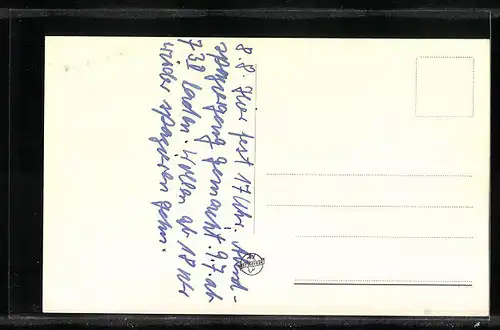 8.8. Hier fest 17 Uhr. Rund-
spaziergang gemacht. 97. ab
7 30 baden. Wollen ab 18 Uhr
wieder spazieren gehn.